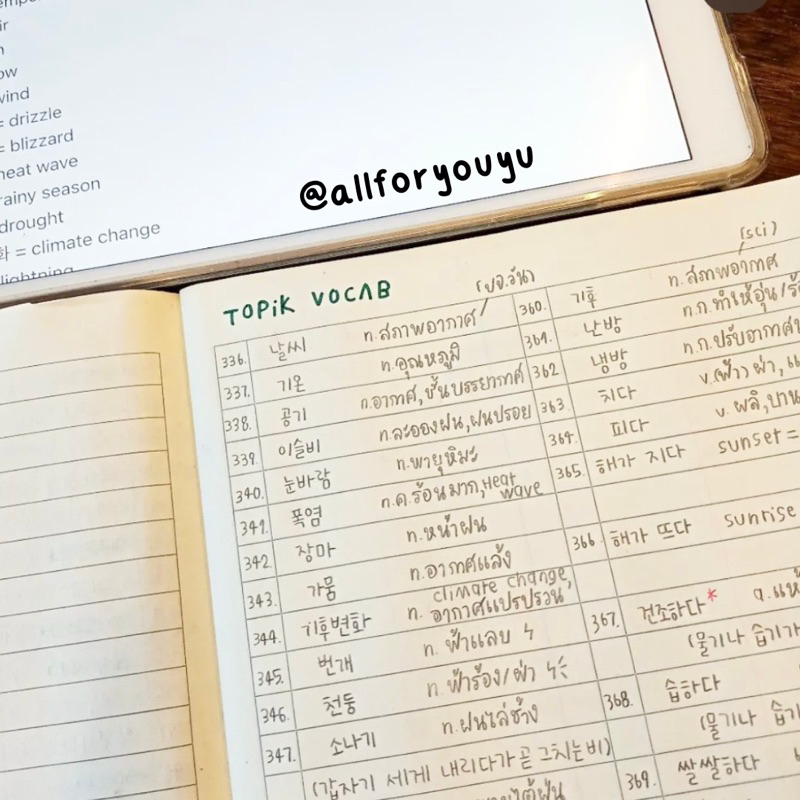 ir
ow
wind
= drizzle
= blizzard
heat wave
rainy season
drought
화 = climate change
lightning
@allforyouyu
TOPIK VOCAB
(ปจ.วัน)
336. 날씨 n.สภาพอากาศ
337. 기온 n.อุณหภูมิ
338. 공기 n.อากาศ, ชั้นบรรยากาศ
339. 이슬비 n.ละอองฝน, ฝนปรอย
340. 눈바람 n.พายุหิมะ
341. 폭염 n.ค.ร้อนมาก, Heat wave
342. 장마 n.หน้าฝน
343. 가뭄 n.อากาศแล้ง
344. 기후변화 n. climate change, อากาศแปรปรวน
345. 번개 n. ฟ้าแลบ
346. 천둥 n.ฟ้าร้อง/ผ่า
347. 소나기 n.ฝนไล่ช้าง
(갑자기 세게 내리다가 곧 그치는 비)
(sci)
360. 기후 n.สภาพอากาศ
361. 난방 n.ก.ทำให้อุ่น/
362 냉방 n.ก.ปรับอากาศ
363. 치다 v.(ฟ้า) ผ่า,
364. 피다 v. ผลิ, บาน
365. 해가 지다 sunset =
366. 해가 뜨다 sunrise
367. 건조하다* a.
(물기나 습기가
368. 습하다
(물기나 습기
369. 쌀쌀하다